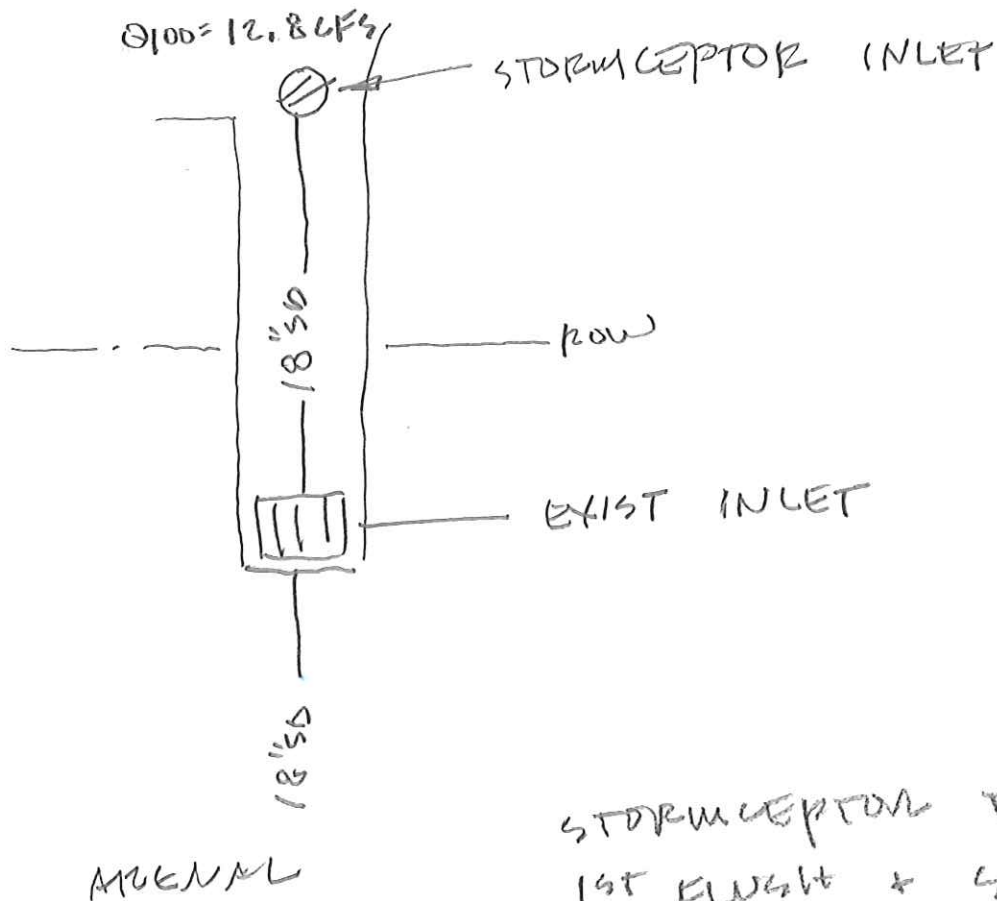 Q100= 12.8 CFS
STORMCEPTOR INLET
18"SD
ROW
EXIST INLET
18"SD
STORMCEPTOR
ARENAL
1ST FLUSH +